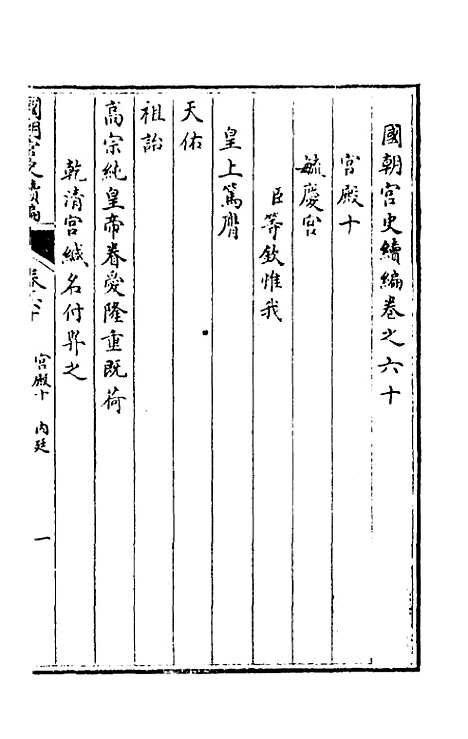 國朝宮史續編卷之六十
宮殿十
毓慶宮
臣等欽惟我
皇上篤膺
天佑
祖詒
高宗純皇帝眷愛隆重既荷
乾清宮緘名付畀之
國朝宮史續編
卷六十
宮殿十 內廷
一